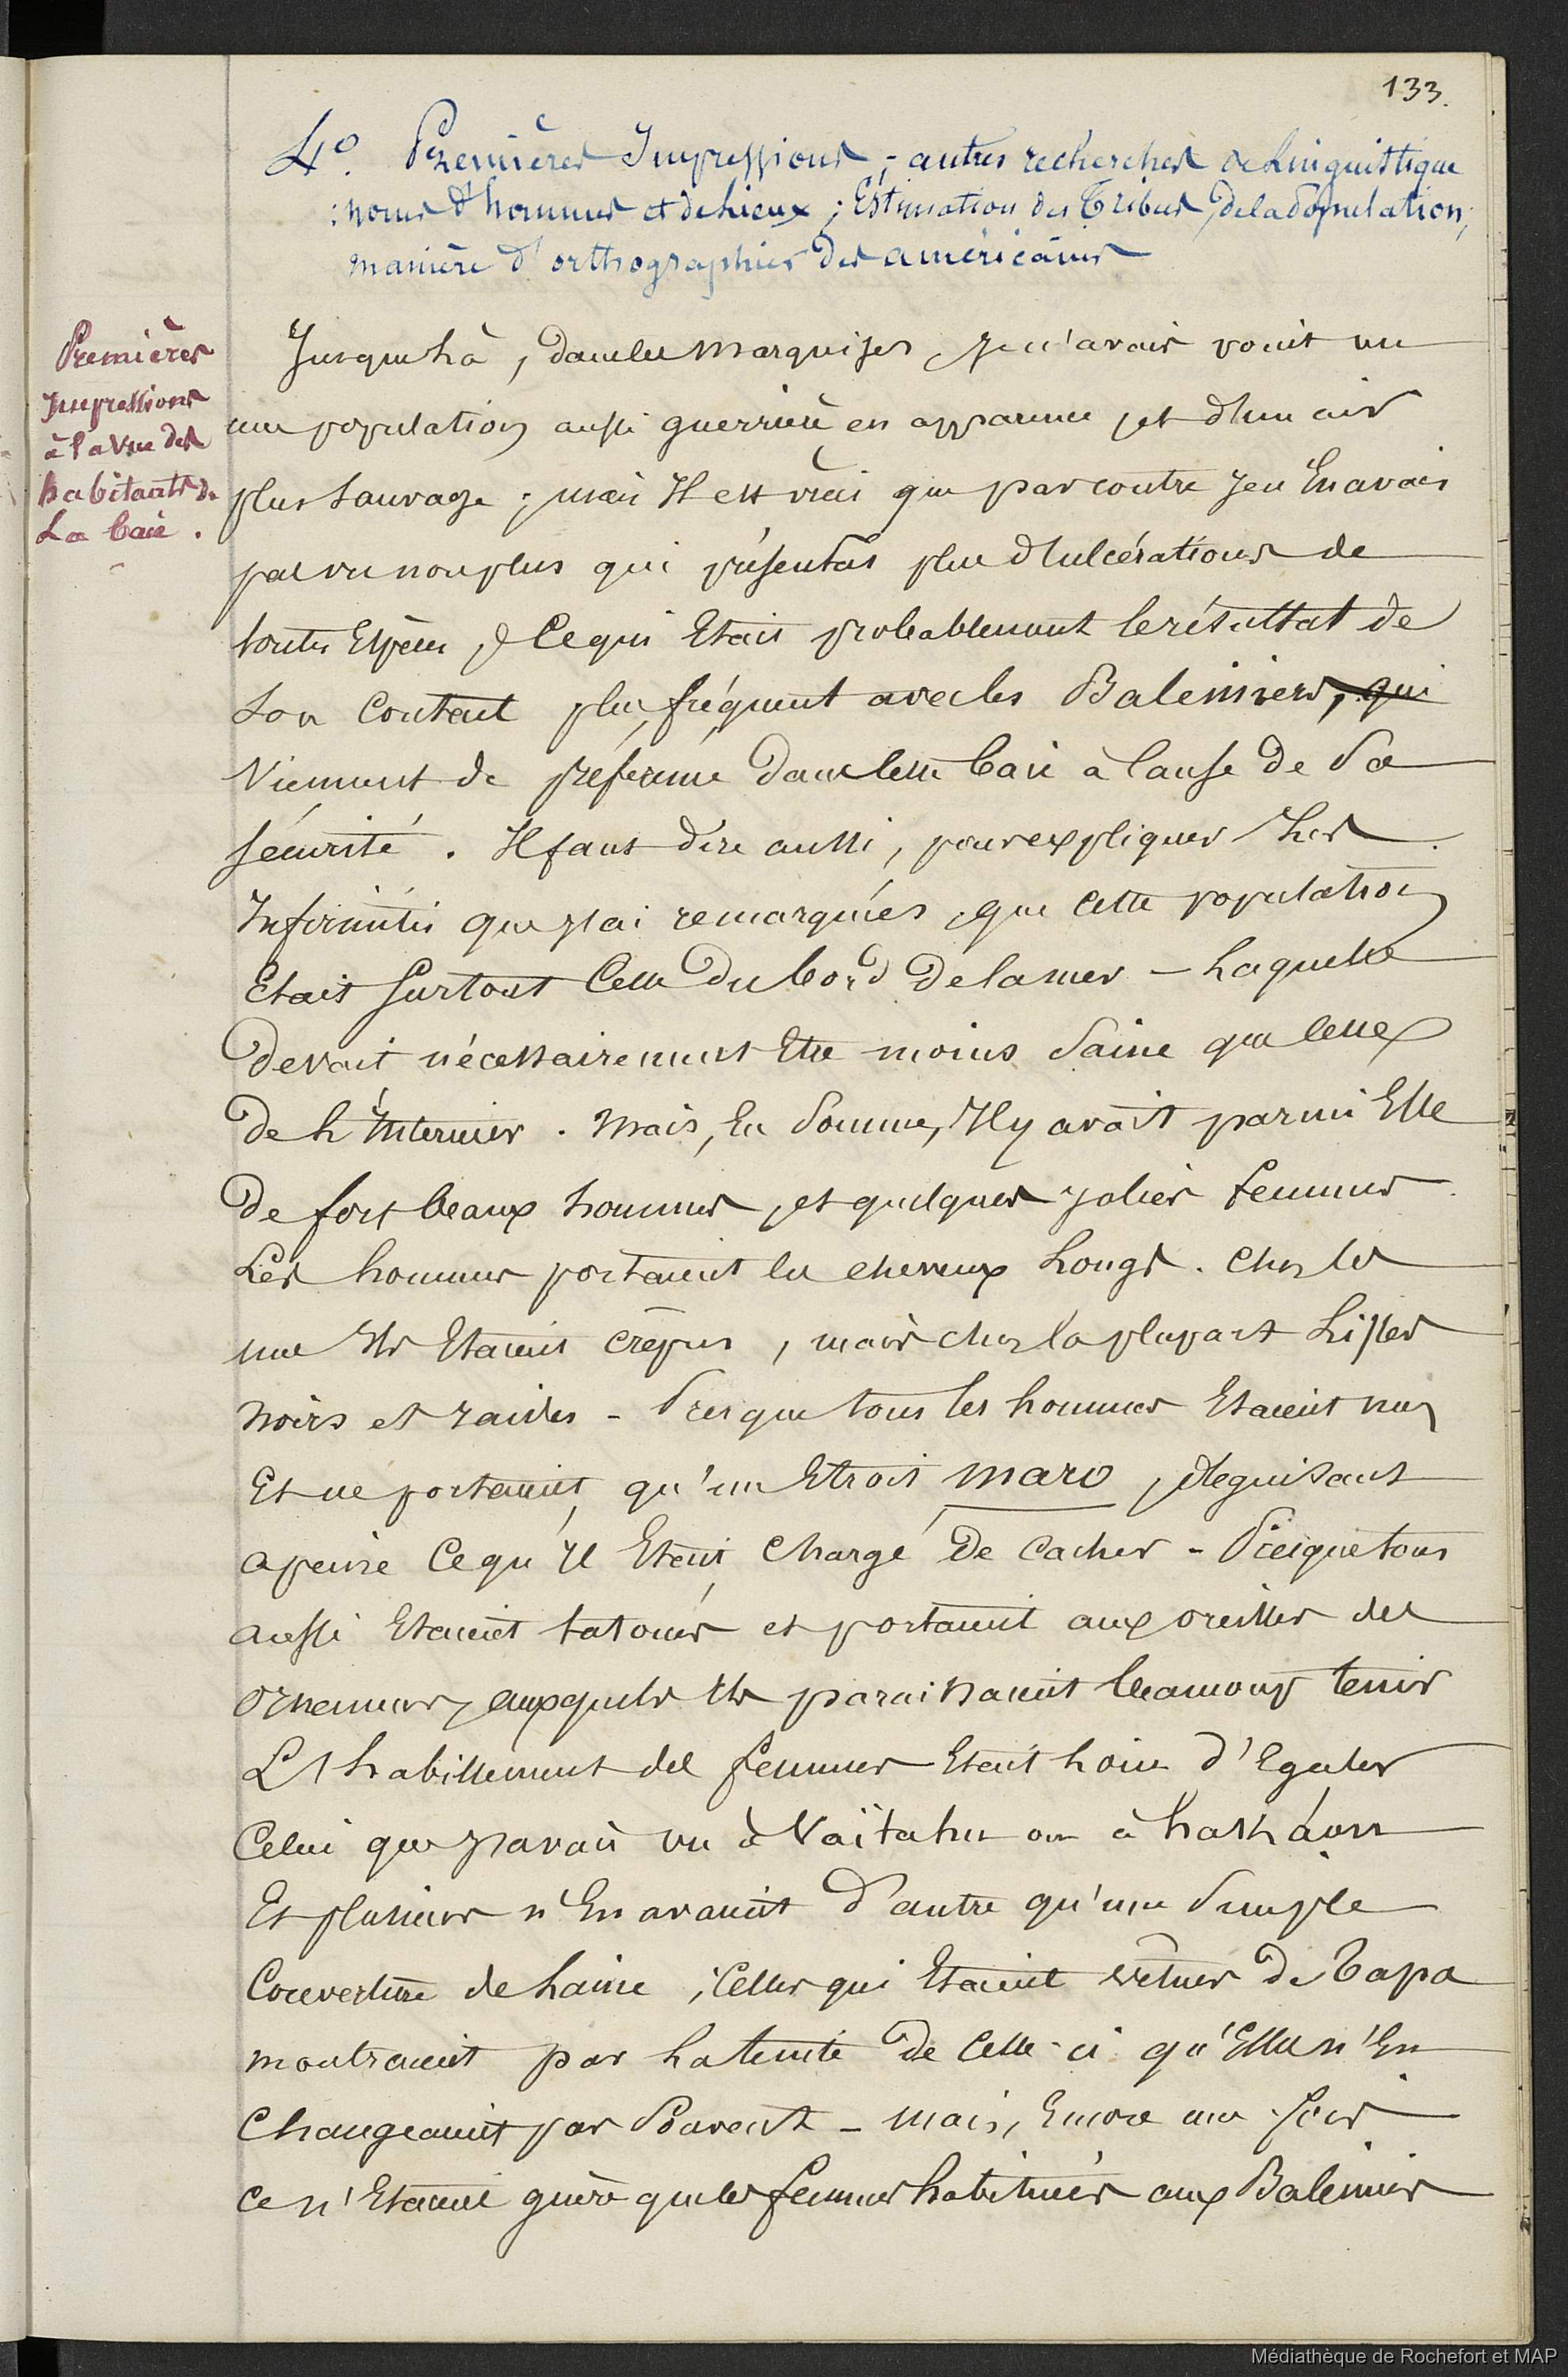 133.
4º. Premières Impressions ; autres recherches de Linguistique
: noms d'hommes et de Lieux ; Estimation des Tribus, de la Population,
manière d'orthographier des américains
Premières
Impressions
à la vue des
habitants de
La Baie.
Jusque Là, dans les marquises, je n'avais point vu
une population aussi guerrière en apparence, et d'un air
plus sauvage ; mais Il est vrai que par contre je n'En avais
pas vu non plus qui présentas plus d'ulcérations de
toutes Espèces, Ce qui Etait probablement le résultat de
son Contact plus fréquent avec les Baleiniers, qui
Viennent de préférence dans cette baie à Cause de Sa
sécurité. Il faut dire aussi, pour expliquer Les
Infirmités que j'ai remarquées, que Cette population
Etait surtout Celle Du bord De la mer – Laquelle
Devait nécessairement Etre moins Saine que Celle
De L'Intérieur. Mais, En Somme, Il y avait parmi Elle
De fort beaux hommes, et quelques jolies femmes.
Les hommes portaient les cheveux Longs. Chez les
uns Ils Etaient crépus, mais chez la plupart Lisses
noirs et raides – Presque tous les hommes Etaient nus
Et ne portaient qu'un Etroit maro, déguisant
a peine Ce qu'Il Etait Chargé De Cacher – Presque tous
aussi Etaient tatoués et portaient aux oreilles des
ornements, auxquels Ils paraissaient beaucoup tenir
L'habillement des femmes Etait Loin d'Egaler
Celui que j'avais vu à Vaïtahu ou à
Et plusieurs n'En avaient D'autre qu'une Simple
Couverture de Laine ; Celles qui Etaient vêtues De Tapa
montraient par La teinte De Celle-ci qu'Elles n'En
Changeaient pas Souvent – Mais, Encore une fois
Ce n'Etaient guère que les femmes habituées aux Baleiniers
Médiathèque de Rochefort et MAP